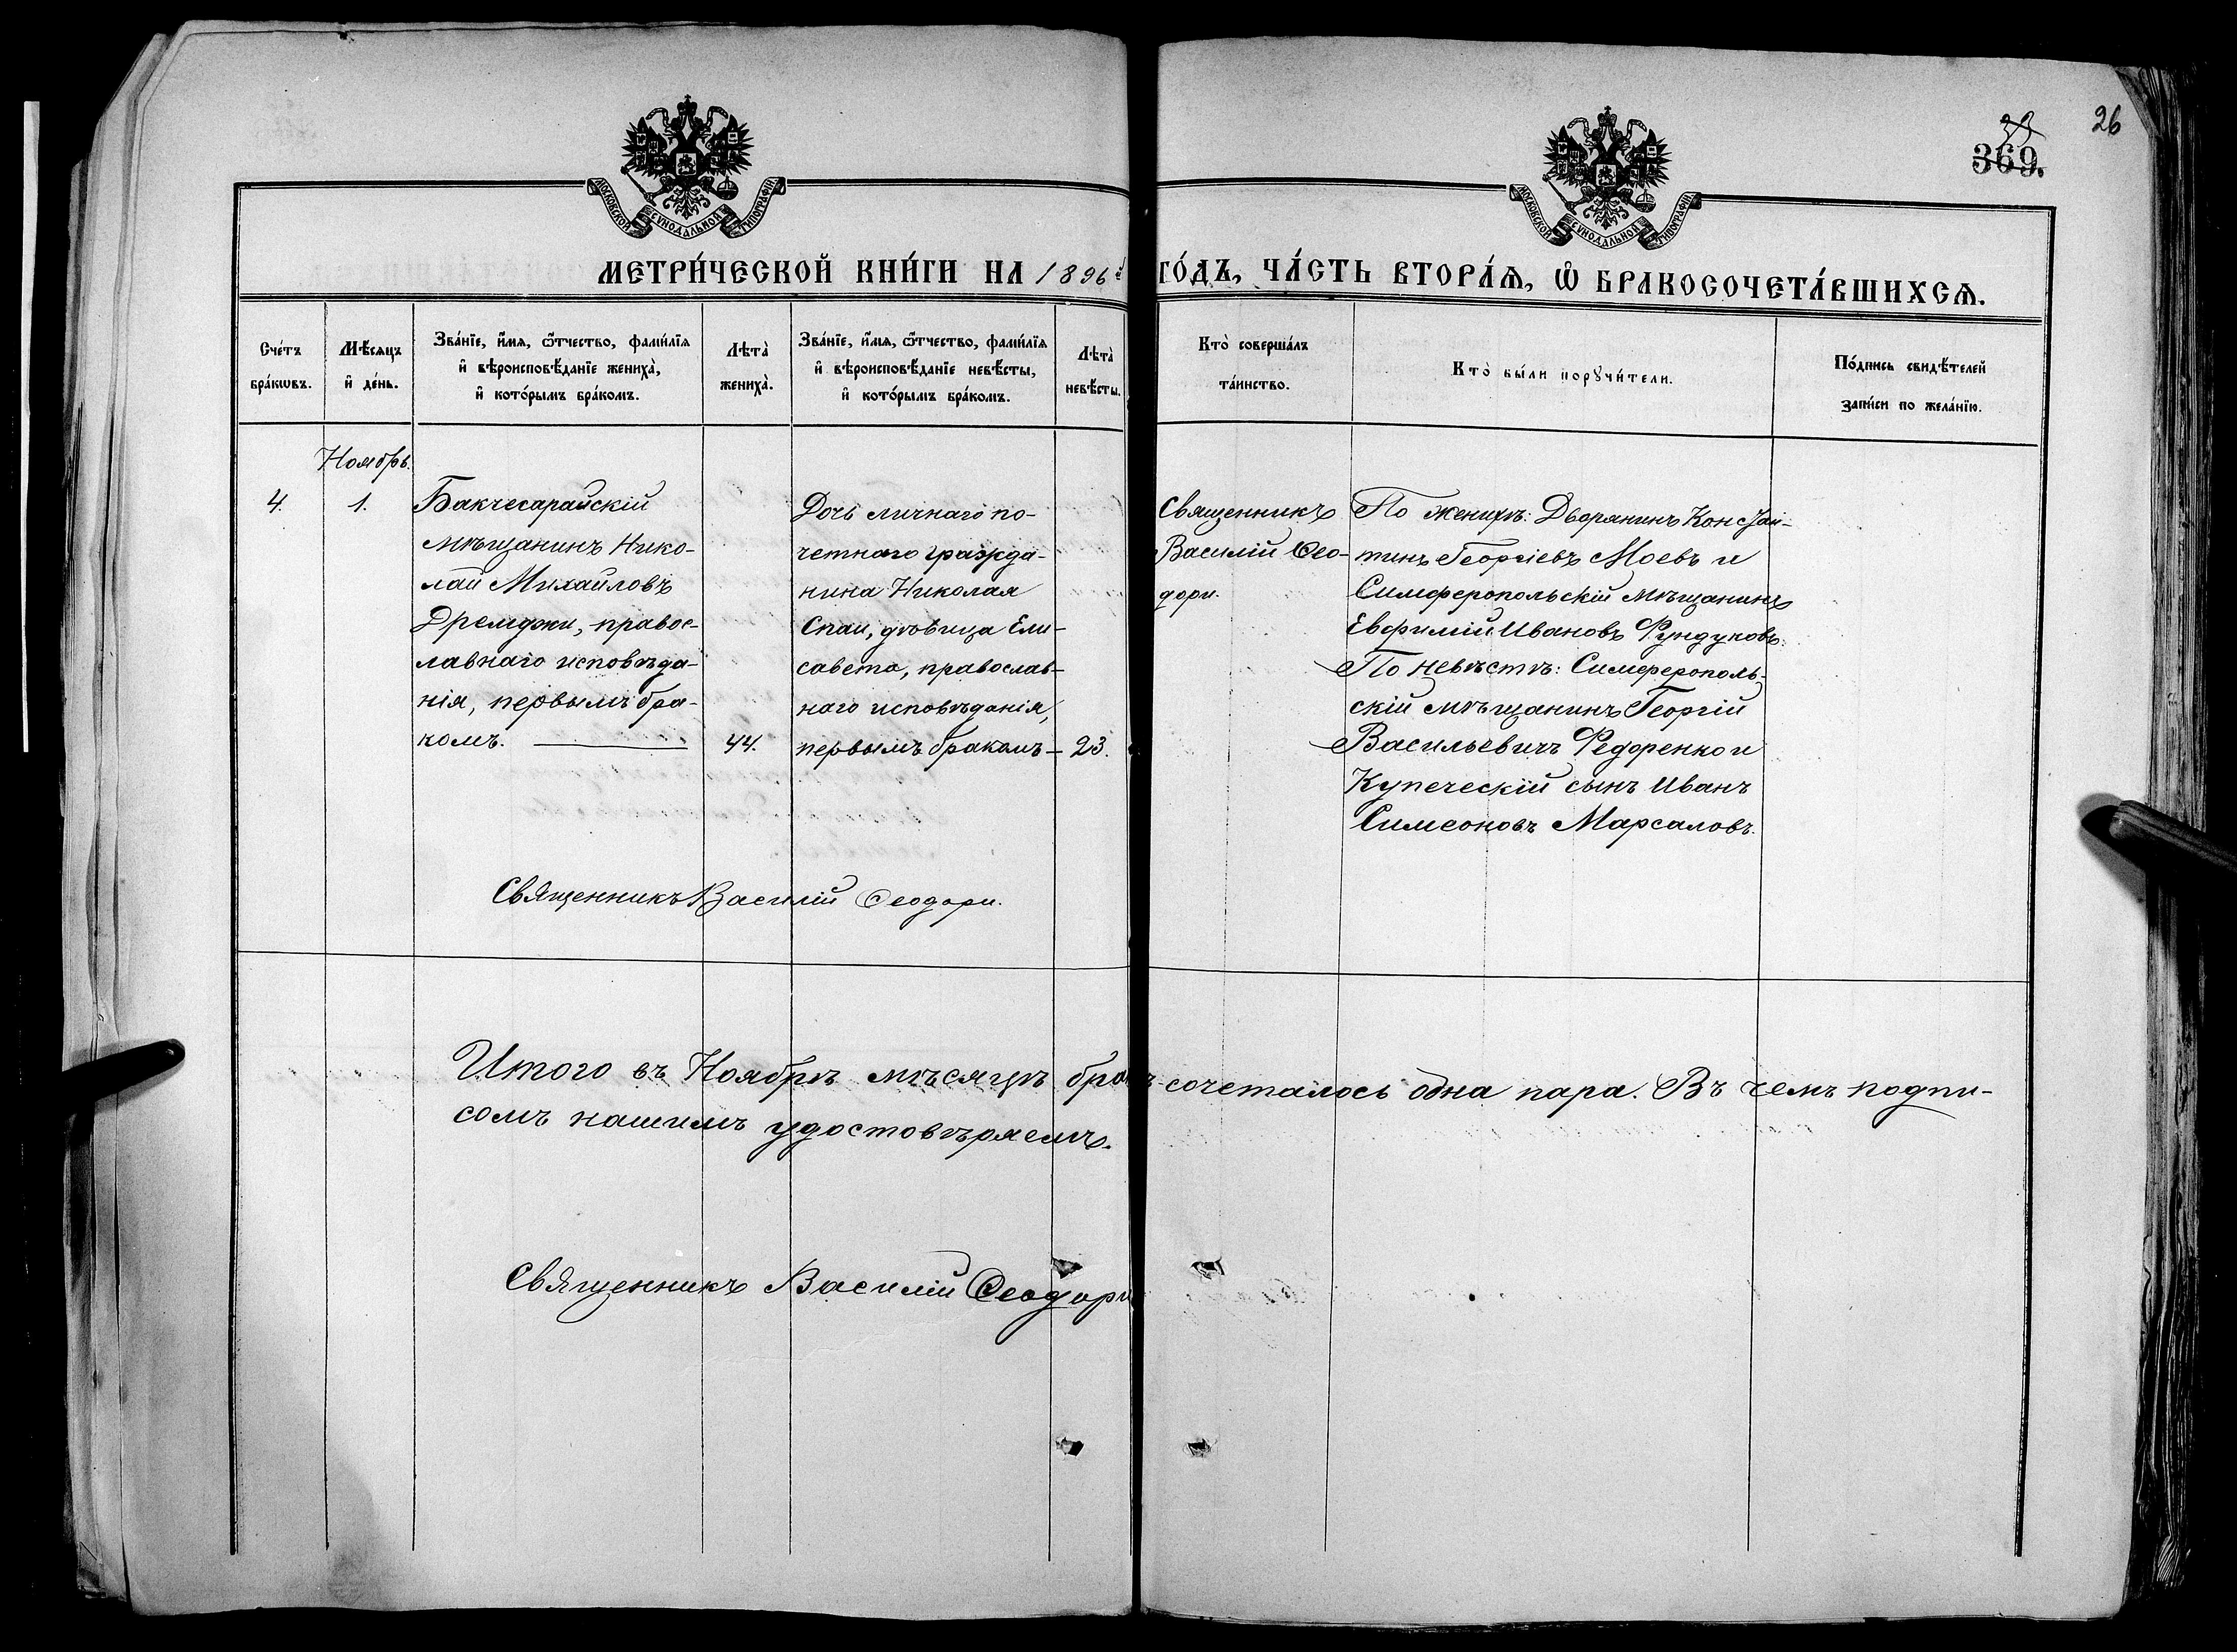 26
369.
МОСКОВСКОЙ СѴНОДАЛЬНОЙ ТИПОГРАФІИ
МОСКОВСКОЙ СѴНОДАЛЬНОЙ ТИПОГРАФІИ
МЕТРИ́ЧЕСКОЙ КНИ́ГИ НА 1896й ГО́ДЪ, ЧА́СТЬ ВТОРА́Ѧ, Ѡ҆ БРАКОСОЧЕТА́ВШИХСѦ.
Сче́тъ
бра́кѡвъ.
Мѣ́сяцъ
и҆ де́нь.
Зва́нїе, и҆́мя, ѻ҆́тчество, фами́лїя
и҆ вѣроисповѣ́данїе жениха̀,
и҆ кото́рымъ бра́комъ.
Лѣта̀
жениха̀.
Зва́нїе, и҆́мя, ѻ҆́тчество, фами́лїя
и҆ вѣроисповѣ́данїе невѣ́сты,
и҆ кото́рымъ бра́комъ.
Лѣта̀
невѣ́сты.
Кто̀ соверша́лъ
та́инство.
Кто̀ бы́ли порꙋчи́тели.
По́дпись свидѣ́телей
за́писи по жела́нїю.
Ноябрь.
4.
1.
Бакчесарайскій
мѣщанинъ Нико-
лай Михайловъ
Дремджи, правос-
лавнаго исповѣда-
нія, первымъ бра-
комъ.
44.
Дочь личнаго по-
четнаго гражда-
нина Николая
Спаи, дѣвица Ели-
савета, православ-
наго исповѣданія,
первымъ бракомъ —
23.
Священникъ
Василій Ѳео-
дори.
По женихѣ: Дворянинъ Констан-
тинъ Георгіевъ Моевъ и
Симферопольскій мѣщанинъ
Евфимій Ивановъ Фундуковъ.
По невѣстѣ: Симферополь-
скій мѣщанинъ Георгій
Васильевичъ Федоренко и
Купеческій сынъ Иванъ
Симеоновъ Марсаловъ.
Священникъ Василій Ѳеодори.
Итого въ Ноябрѣ мѣсяцѣ брак сочеталось одна пара. Въ чемъ подпи-
сомъ нашимъ удостовѣряемъ.
Священникъ Василій Ѳеодори